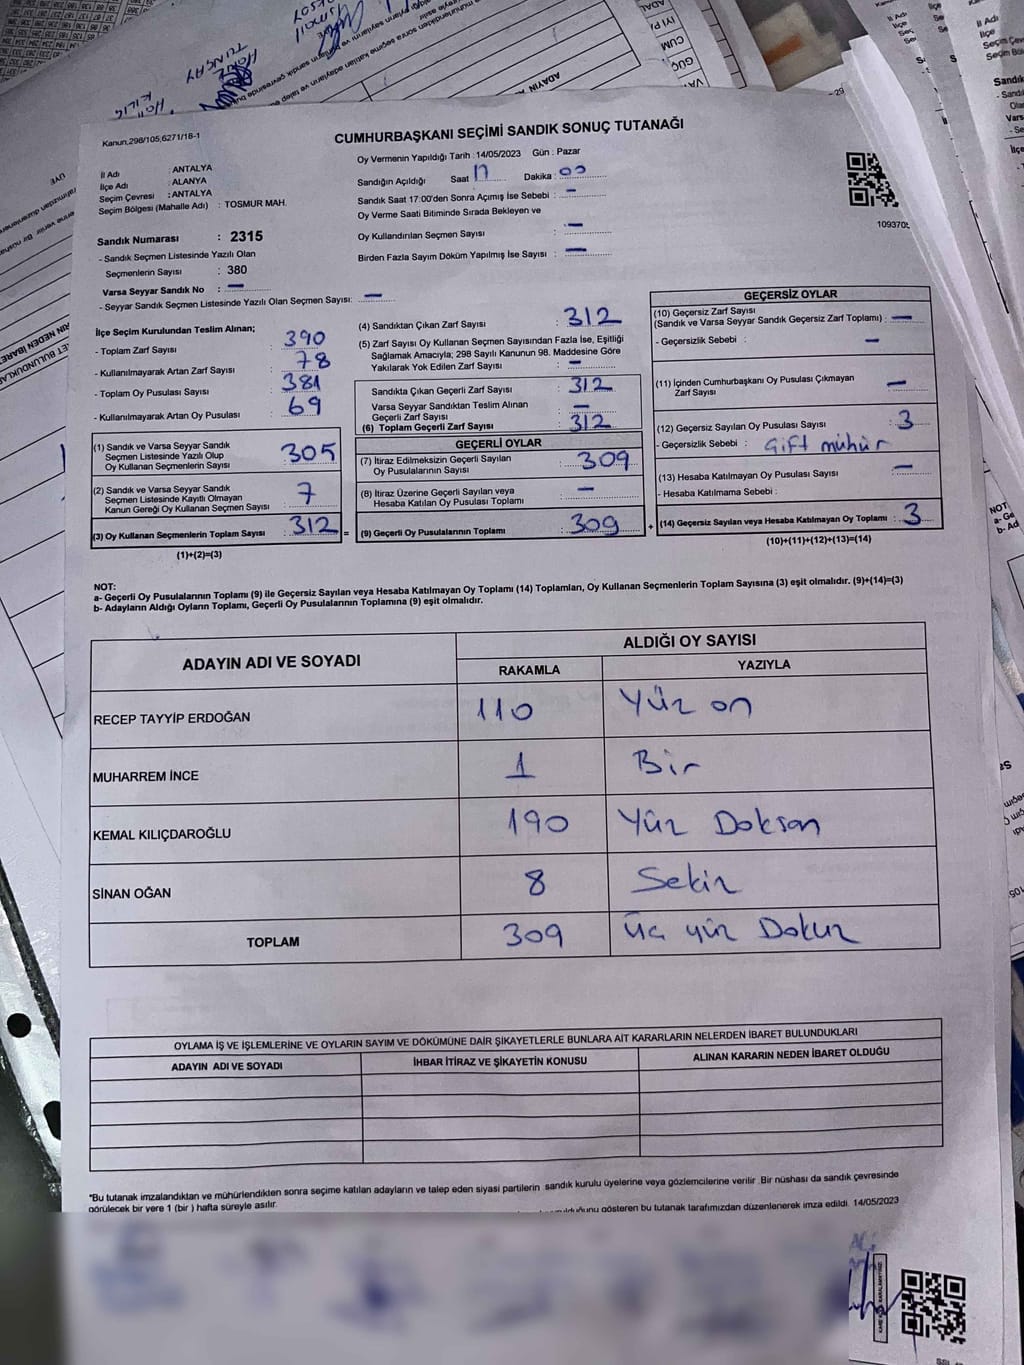 Kanun,298/105,6271/18-1
CUMHURBAŞKANI SEÇİMİ SANDIK SONUÇ TUTANAĞI
İl Adı : ANTALYA
İlçe Adı : ALANYA
Seçim Çevresi : ANTALYA
Seçim Bölgesi (Mahalle Adı) : TOSMUR MAH.
Oy Vermenin Yapıldığı Tarih : 14/05/2023 Gün : Pazar
Sandığın Açıldığı Saat 17 Dakika : 00
Sandık Saat 17:00'den Sonra Açımış İse Sebebi : -
Oy Verme Saati Bitiminde Sırada Bekleyen ve
Oy Kullandırılan Seçmen Sayısı : -
Birden Fazla Sayım Döküm Yapılmış İse Sayısı : -
109370
Sandık Numarası : 2315
- Sandık Seçmen Listesinde Yazılı Olan
Seçmenlerin Sayısı : 380
Varsa Seyyar Sandık No : -
- Seyyar Sandık Seçmen Listesinde Yazılı Olan Seçmen Sayısı: -
İlçe Seçim Kurulundan Teslim Alınan;
- Toplam Zarf Sayısı 390
- Kullanılmayarak Artan Zarf Sayısı 78
- Toplam Oy Pusulası Sayısı 381
- Kullanılmayarak Artan Oy Pusulası 69
(1) Sandık ve Varsa Seyyar Sandık
Seçmen Listesinde Yazılı Olup
Oy Kullanan Seçmenlerin Sayısı 305
(2) Sandık ve Varsa Seyyar Sandık
Seçmen Listesinde Kayıtlı Olmayan
Kanun Gereği Oy Kullanan Seçmen Sayısı : 7
(3) Oy Kullanan Seçmenlerin Toplam Sayısı : 312 =
(1)+(2)=(3)
(4) Sandıktan Çıkan Zarf Sayısı : 312
(5) Zarf Sayısı Oy Kullanan Seçmen Sayısından Fazla İse, Eşitliği
Sağlamak Amacıyla; 298 Sayılı Kanunun 98. Maddesine Göre
Yakılarak Yok Edilen Zarf Sayısı : -
Sandıkta Çıkan Geçerli Zarf Sayısı : 312
Varsa Seyyar Sandıktan Teslim Alınan
Geçerli Zarf Sayısı : -
(6) Toplam Geçerli Zarf Sayısı : 312
GEÇERLİ OYLAR
(7) İtiraz Edilmeksizin Geçerli Sayılan
Oy Pusulalarının Sayısı : 309
(8) İtiraz Üzerine Geçerli Sayılan veya
Hesaba Katılan Oy Pusulası Toplamı : -
(9) Geçerli Oy Pusulalarının Toplamı : 309 +
GEÇERSİZ OYLAR
(10) Geçersiz Zarf Sayısı
(Sandık ve Varsa Seyyar Sandık Geçersiz Zarf Toplamı) : -
- Geçersizlik Sebebi : -
(11) İçinden Cumhurbaşkanı Oy Pusulası Çıkmayan
Zarf Sayısı : -
(12) Geçersiz Sayılan Oy Pusulası Sayısı : 3
- Geçersizlik Sebebi : Çift mühür
(13) Hesaba Katılmayan Oy Pusulası Sayısı : -
- Hesaba Katılmama Sebebi :
(14) Geçersiz Sayılan veya Hesaba Katılmayan Oy Toplamı : 3
(10)+(11)+(12)+(13)=(14)
NOT:
a- Geçerli Oy Pusulalarının Toplamı (9) ile Geçersiz Sayılan veya Hesaba Katılmayan Oy Toplamı (14) Toplamları, Oy Kullanan Seçmenlerin Toplam Sayısına (3) eşit olmalıdır. (9)+(14)=(3)
b- Adayların Aldığı Oyların Toplamı, Geçerli Oy Pusulalarının Toplamına (9) eşit olmalıdır.
ADAYIN ADI VE SOYADI
ALDIĞI OY SAYISI
RAKAMLA YAZIYLA
RECEP TAYYİP ERDOĞAN 110 Yüz on
MUHARREM İNCE 1 Bir
KEMAL KILIÇDAROĞLU 190 Yüz Doksan
SİNAN OĞAN 8 Sekiz
TOPLAM 309 Üç yüz Dokuz
OYLAMA İŞ VE İŞLEMLERİNE VE OYLARIN SAYIM VE DÖKÜMÜNE DAİR ŞİKAYETLERLE BUNLARA AİT KARARLARIN NELERDEN İBARET BULUNDUKLARI
ADAYIN ADI VE SOYADI İHBAR İTİRAZ VE ŞİKAYETİN KONUSU ALINAN KARARIN NEDEN İBARET OLDUĞU
*Bu tutanak imzalandıktan ve mühürlendikten sonra seçime katılan adayların ve talep eden siyasi partilerin sandık kurulu üyelerine veya gözlemcilerine verilir. Bir nüshası da sandık çevresinde
görülecek bir yere 1 (bir) hafta süreyle asılır.
gösteren bu tutanak tarafımızdan düzenlenerek imza edildi. 14/05/2023